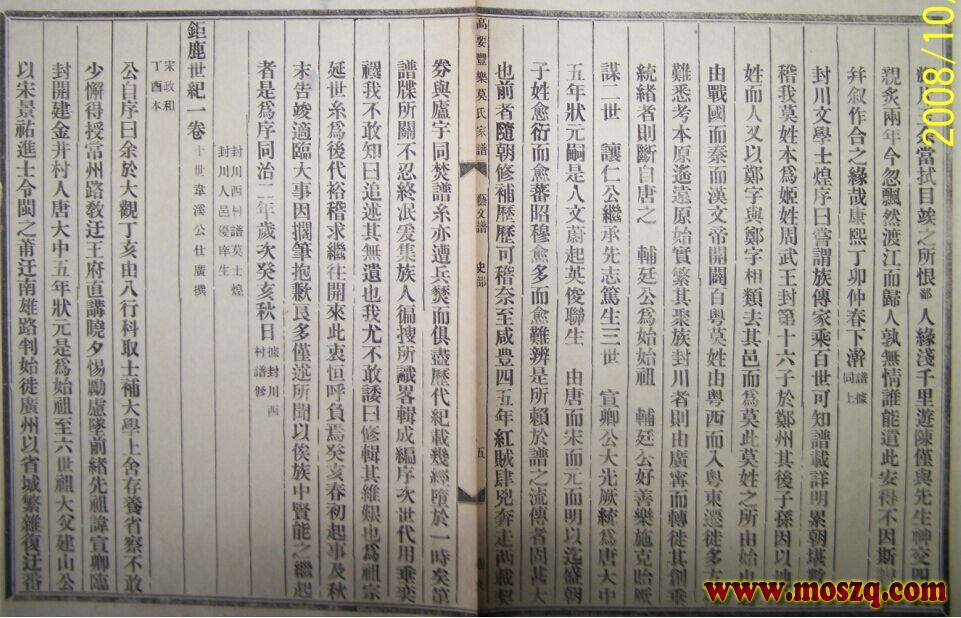 親炙兩年今忽飄然渡江而歸人孰無情誰能遣此安得不因斯
并叙作合之緣哉康熙丁卯仲春下澣譜據同上
封川文學士煌序曰嘗謂族傳家乘百世可知譜載詳明累朝堪
稽我莫姓本為姬姓周武王封第十六子於鄭州其後子孫因以地
姓而人又以鄭字與鄭字相類去其邑而為莫此莫姓之所由始也
由戰國而秦而漢文帝開闢百粵莫姓由粵西而入粵東遷徙多
難悉考本原遙遠原始實繁其聚族封川者則由廣寧而轉徙其創垂
統緒者則斷自唐之 輔廷公為始始祖 輔廷公好善樂施克貽厥
謀二世 讓仁公繼承先志篤生三世 宣卿公大光厥統為唐大中
五年狀元嗣是人文蔚起英俊聯生 由唐而宋而元而明以迄盛朝
子姓愈衍而愈蕃昭穆愈多而愈難辨是所賴於譜之流傳者固甚大
也前者隨朝修補歷歷可稽奈至咸豐四五年紅賊肆兇奔走兩載契
高要豐樂莫氏家譜 藝文譜 史部 五
券與廬字同焚譜糸亦遭兵燹而俱盡歷代紀載幾經墮於一時矣第
譜牒所關不忍終泯爰集族人徧搜所識畧輯成編序次世代用垂奕
禩我不敢知曰追述其無遺也我尤不敢諉曰修輯其維艱也為祖宗
延世糸為後代裕稽求繼往開來此衷恒呼負焉癸亥春初起事及秋
末告竣適臨大事因擱筆抱歉艮多僅述所聞以俟族中賢能之繼起
者是為序同治二年歲次癸亥秋日據封川西村譜修
封川西村譜莫士煌
封川人邑優庠生
鉅鹿世紀一卷 十世韋溪公仕廣撰
宋政和
丁酉本
公自序曰余於大觀丁亥由八行科取士補大學上舍存養省察不敢
少懈得授常州路教迁王府直講曉夕惕勵慮墜前緒先祖諱宣卿臨
封開建金井村人唐大中五年狀元是為始祖至六世祖大父建山公
以宋景祐進士令閩之莆迁南雄路判始徙廣州以省城繁雜復迁番
2008/10/
www.moszq.com